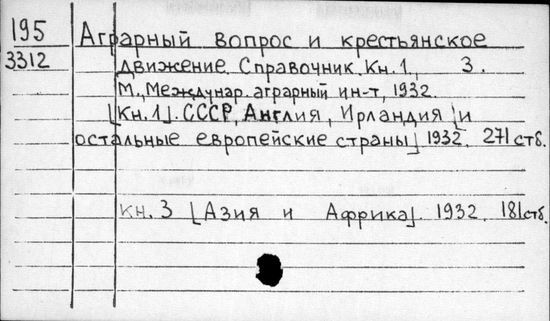 195 Аграрный вопрос и крестьянское
3312 движение. Справочник. Кн. 1, 3.
М., Междунар. аграрный ин-т, 1932.
[Кн. 1]. СССР, Англия, Ирландия [и
остальные европейские страны] 1932. 271 стб.
кн. 3 [Азия и Африка]. 1932. 181 стб.